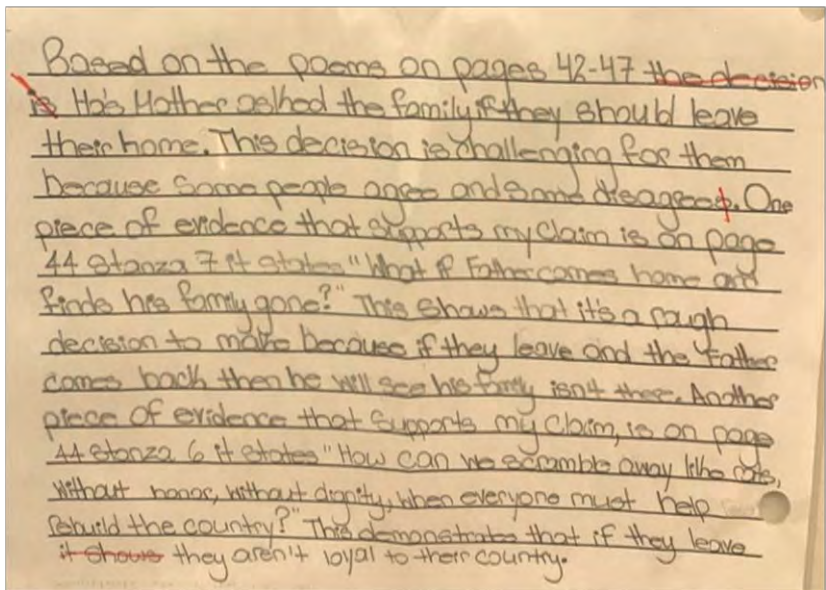 Based on the poems on pages 42-47 the decision
is Hà's Mother asked the family if they should leave
their home. This decision is challenging for them
because some people agree and some disagree. One
piece of evidence that supports my claim is on page
44 Stanza 7 it states "What if Father comes home and
finds his family gone?" This shows that it's a rough
decision to make because if they leave and the father
comes back then he will see his family isn't there. Another
piece of evidence that supports my claim, is on page
44 stanza 6 it states "How can we scramble away like rats,
without honor, without dignity, when everyone must help
rebuild the country?" This demonstrates that if they leave
it shows they aren't loyal to their country.